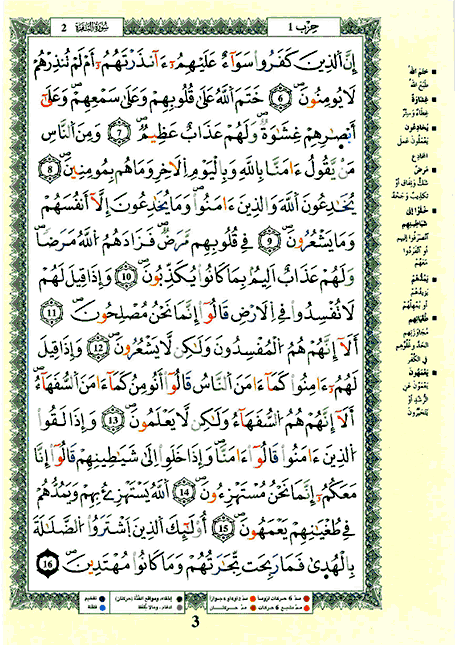 حِزْب 1
سُورَةُ الْبَقَرَةِ 2
إِنَّ ٱلذِينَ كَفَرُوا سَوَآءٌ عَلَيْهِمُۥٓ ءَآنذَرْتَهُمُۥٓ أَمْ لَمْ تُنذِرْهُمْ
لَا يُومِنُونَ 6 خَتَمَ ٱللَّهُ عَلَىٰ قُلُوبِهِمْ وَعَلَىٰ سَمْعِهِمْ وَعَلَىٰٓ
أَبْصَٰرِهِمْ غِشَٰوَةٌ وَلَهُمْ عَذَابٌ عَظِيمٌ 7 وَمِنَ ٱلنَّاسِ
مَنْ يَّقُولُ ءَامَنَّا بِاللَّهِ وَبِالْيَوْمِ ٱلَاخِرِ وَمَا هُم بِمُومِنِينَ 8
يُخَٰدِعُونَ ٱللَّهَ وَٱلذِينَ ءَامَنُوا وَمَا يُخَٰدِعُونَ إِلَّآ أَنفُسَهُمْ
وَمَا يَشْعُرُونَ 9 فِي قُلُوبِهِم مَّرَضٌ فَزَادَهُمُ ٱللَّهُ مَرَضًا
وَلَهُمْ عَذَابٌ اَلِيمٌ بِمَا كَانُوا يُكَذِّبُونَ 10 وَإِذَا قِيلَ لَهُمْ
لَا تُفْسِدُوا فِي ٱلَارْضِ قَالُوٓا إِنَّمَا نَحْنُ مُصْلِحُونَ 11
أَلَآ إِنَّهُمْ هُمُ ٱلْمُفْسِدُونَ وَلَٰكِن لَّا يَشْعُرُونَ 12 وَإِذَا قِيلَ
لَهُمُۥٓ ءَامِنُوا كَمَآ ءَامَنَ ٱلنَّاسُ قَالُوٓا أَنُومِنُ كَمَآ ءَامَنَ ٱلسُّفَهَآءُ
أَلَآ إِنَّهُمْ هُمُ ٱلسُّفَهَآءُ وَلَٰكِن لَّا يَعْلَمُونَ 13 وَإِذَا لَقُوا
ٱلذِينَ ءَامَنُوا قَالُوٓا ءَامَنَّا وَإِذَا خَلَوِا اِلَىٰ شَيَٰطِينِهِمْ قَالُوٓا إِنَّا
مَعَكُمُۥٓ إِنَّمَا نَحْنُ مُسْتَهْزِءُونَ 14 ٱللَّهُ يَسْتَهْزِئُ بِهِمْ وَيَمُدُّهُمْ
فِي طُغْيَٰنِهِمْ يَعْمَهُونَ 15 أُوْلَٰٓئِكَ ٱلذِينَ ٱشْتَرَوُا ٱلضَّلَٰلَةَ
بِالْهُدَىٰ فَمَا رَبِحَت تِّجَٰرَتُهُمْ وَمَا كَانُوا مُهْتَدِينَ 16
خَتَمَ اللهُ
طَبَعَ اللهُ
غِشَاوَةٌ
غِطَاءٌ وَسِتْرٌ
يُخَادِعُونَ
يَعْمَلُونَ عَمَلَ
المُخَادِعِ
مَرَضٌ
شَكٌّ وَنِفَاقٌ أَوْ
تَكْذِيبٌ وَجَحْدٌ
خَلَوْا إِلَى
شَيَاطِينِهِمْ
انْصَرَفُوا إِلَيْهِمْ
أَوِ انْفَرَدُوا
مَعَهُمْ
يَمُدُّهُمْ
يَزِيدُهُمْ
أَوْ يُمْهِلُهُمْ
طُغْيَانِهِمْ
مُجَاوَزَتِهِمُ
الحَدَّ وَغُلُوِّهِمْ
فِي الكُفْرِ
يَعْمَهُونَ
يَعْمَوْنَ عَنِ
الرُّشْدِ أَوْ
يَتَحَيَّرُونَ
مدّ 6 حركات لزوما
مدّ مشبع 6 حركات
مدّ حركتان
إخفاء، ومواقع الغنّة (حركتان)
إدغام، وما لا يُلفظ
تفخيم
قلقلة
3